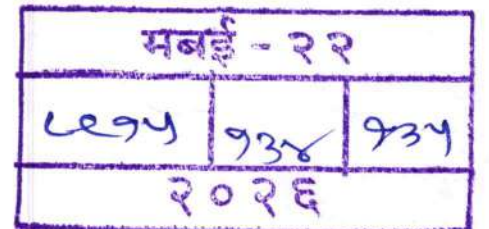 मबई - २२
८९१५ १३४ १३५
२०२६